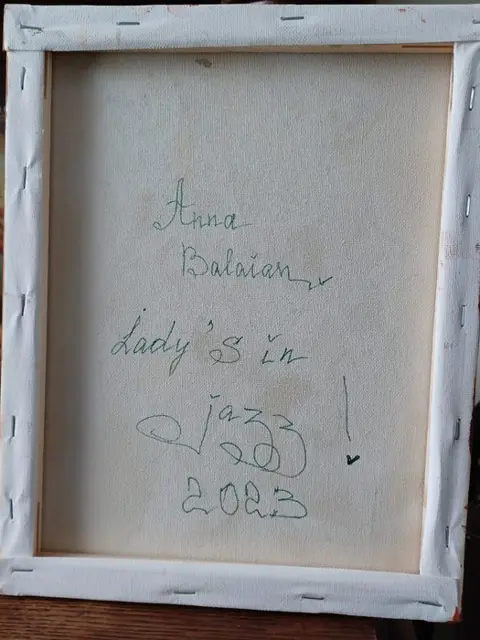 Anna
Balaian
Lady's in
jazz !
2023